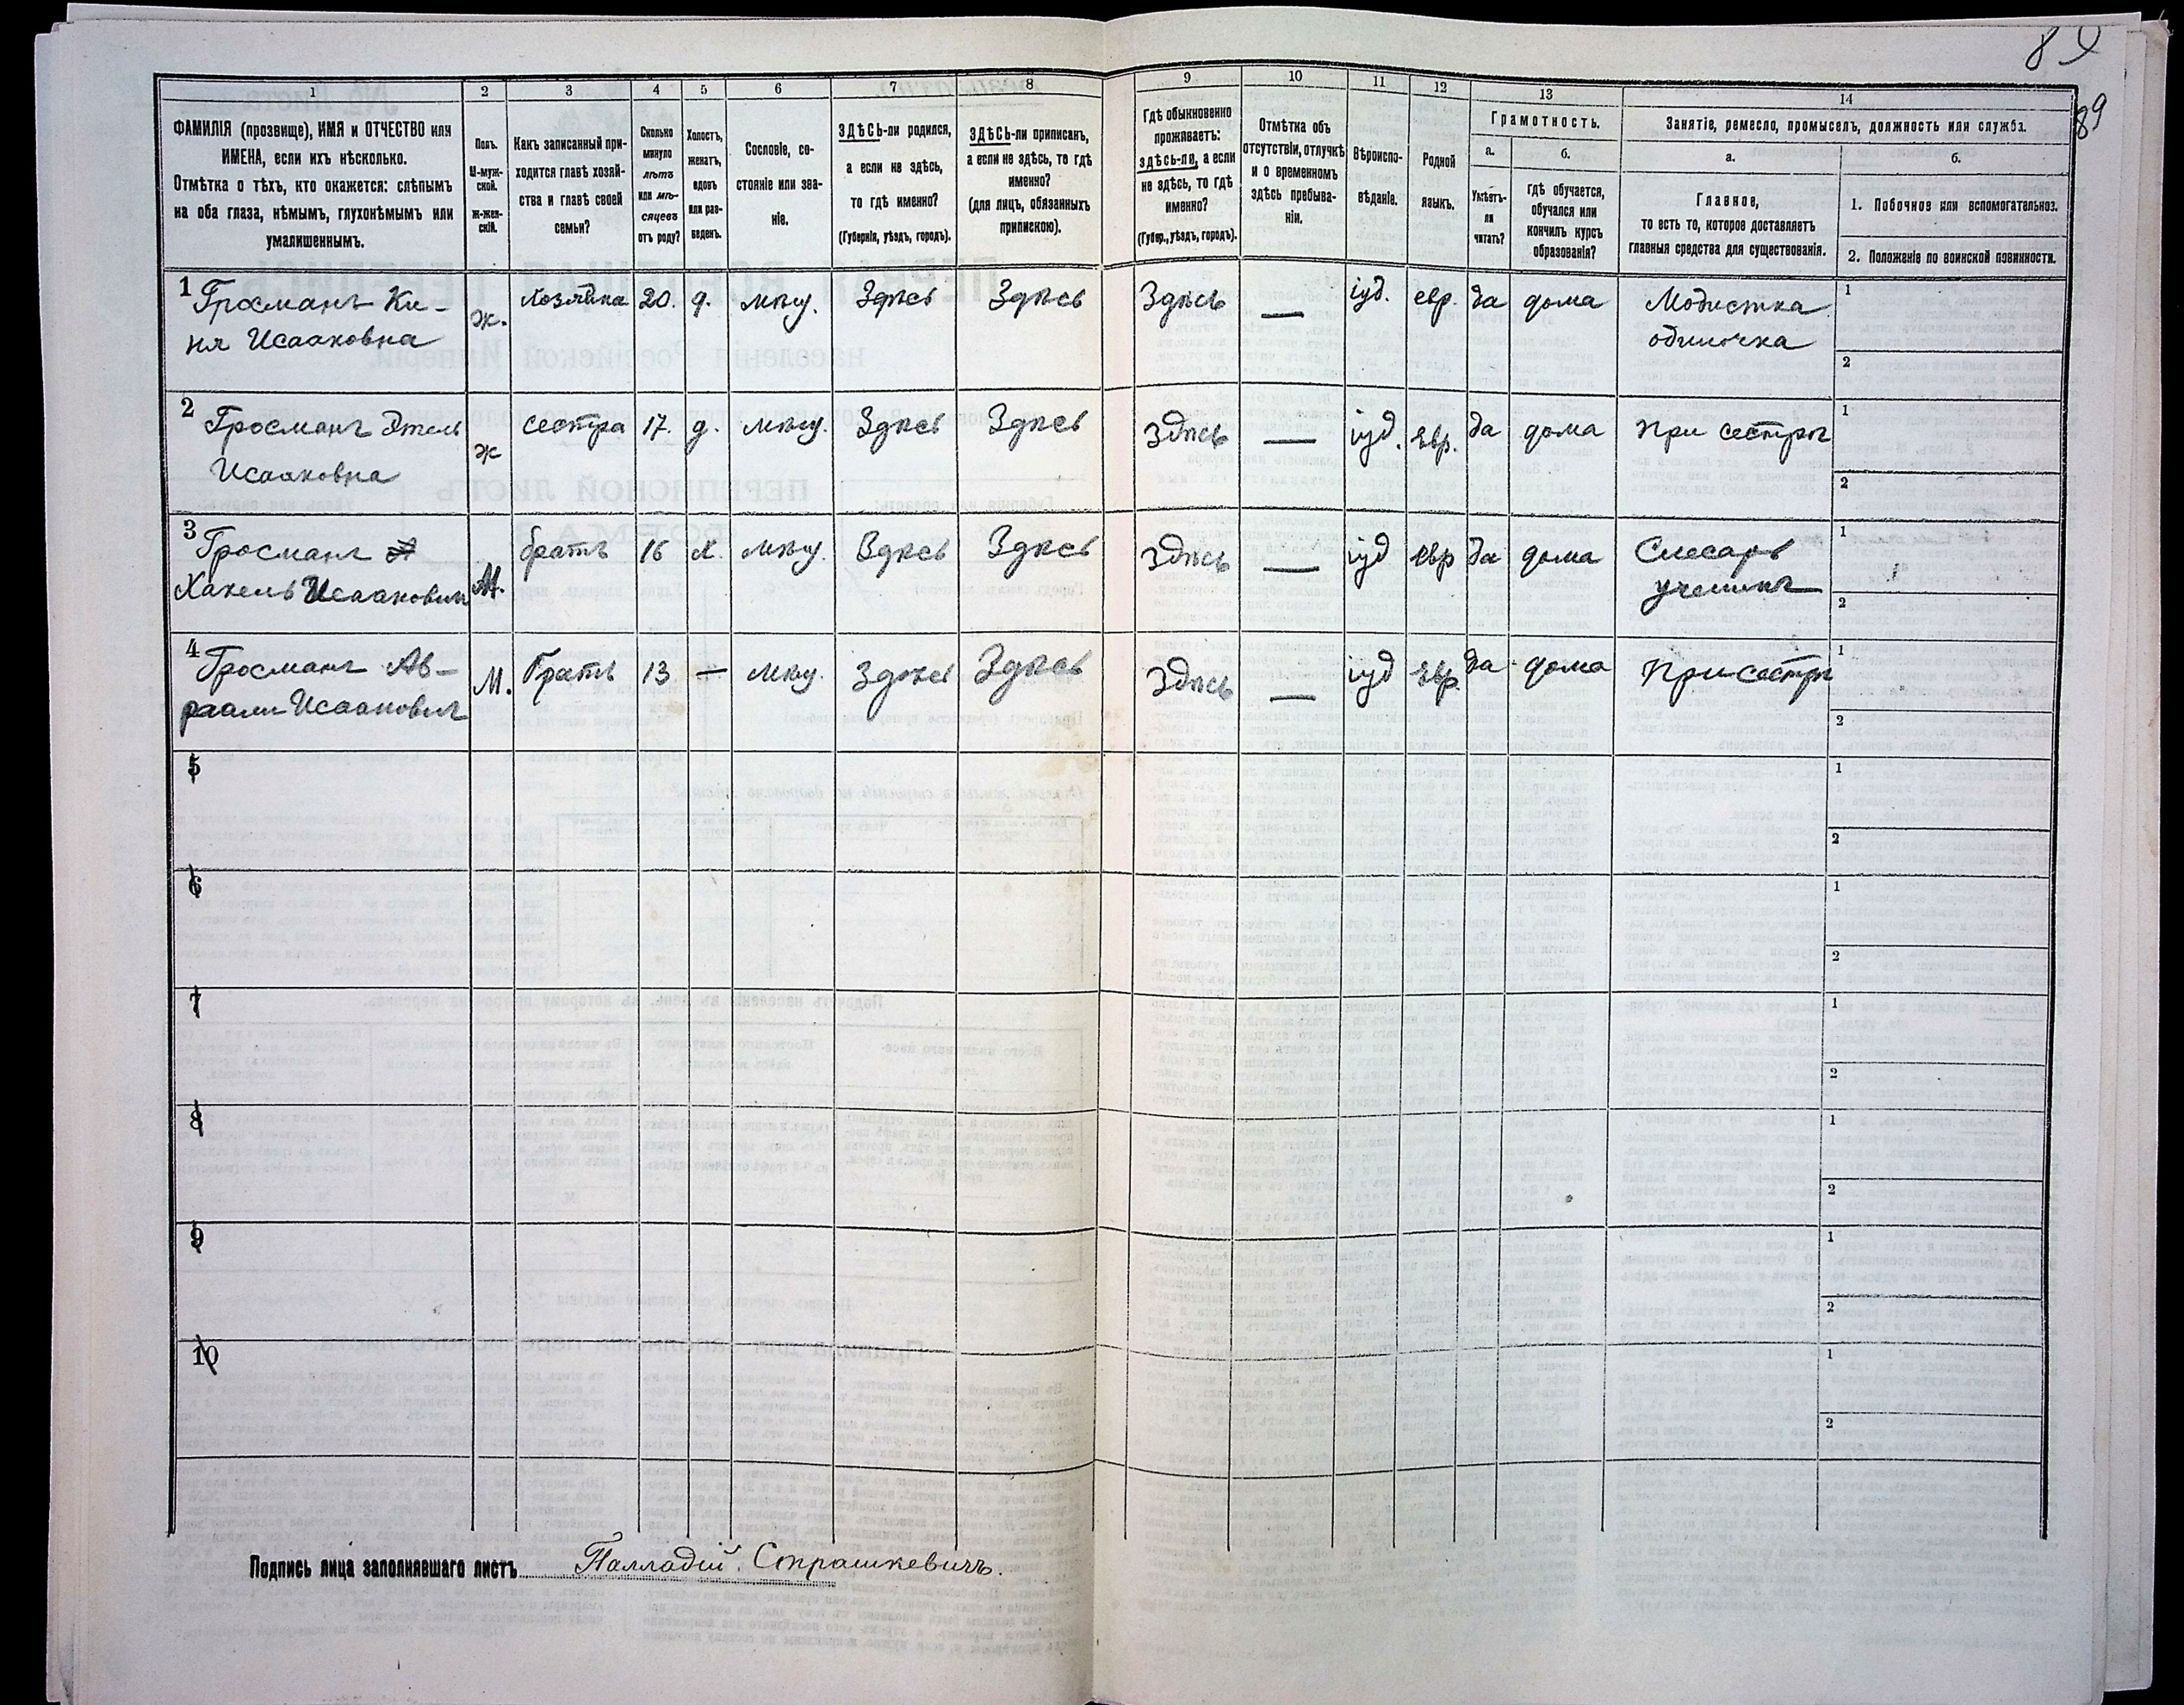 89
89
1 2 3 4 5 6 7 8 9 10 11 12 13 14
ФАМИЛІЯ (прозвище), ИМЯ и ОТЧЕСТВО или
ИМЕНА, если ихъ нѣсколько.
Отмѣтка о тѣхъ, кто окажется: слѣпымъ
на оба глаза, нѣмымъ, глухонѣмымъ или
умалишеннымъ.
Полъ.
М-муж-
ской.
Ж-жен-
скій.
Какъ записанный при-
ходится главѣ хозяй-
ства и главѣ своей
семьи?
Сколько
минуло
лѣтъ
или мѣ-
сяцевъ
отъ роду?
Холостъ,
женатъ,
вдовъ
или раз-
веденъ.
Сословіе, со-
стояніе или зва-
ніе.
ЗДѢСЬ-ли родился,
а если не здѣсь,
то гдѣ именно?
(Губернія, уѣздъ, городъ).
ЗДѢСЬ-ли приписанъ,
а если не здѣсь, то гдѣ
именно?
(для лицъ, обязанныхъ
припискою).
Гдѣ обыкновенно
проживаетъ:
здѣсь-ли, а если
не здѣсь, то гдѣ
именно?
(Губер., уѣздъ, городъ).
Отмѣтка объ
отсутствіи, отлучкѣ
и о временномъ
здѣсь пребыва-
ніи.
Вѣроиспо-
вѣданіе.
Родной
языкъ.
Грамотность.
а.
Умѣетъ-
ли
читать?
б.
гдѣ обучается,
обучался или
кончилъ курсъ
образованія?
Занятіе, ремесло, промыселъ, должность или служба.
а.
Главное,
то есть то, которое доставляетъ
главныя средства для существованія.
б.
1. Побочное или вспомогательное.
2. Положеніе по воинской повинности.
1 Гросманъ Ки- ж. хозяйка 20. д. мѣщ. Здѣсь Здѣсь Здѣсь — іуд. евр. да дома Модистка 1
ня Исааковна одиночка 2
2 Гросманъ Этель ж сестра 17. д. мѣщ. Здѣсь Здѣсь Здѣсь — іуд. евр. да дома При сестрѣ 1
Исааковна 2
3 Гросманъ М. братъ 16 х. мѣщ. Здѣсь Здѣсь Здѣсь — іуд евр да дома Слесарь 1
Исаакович ученикъ 2
4 Гросманъ Ав- М. братъ 13 — мѣщ. Здѣсь Здѣсь Здѣсь — іуд евр. да дома При сестрѣ 1
раам Исаакович 2
5 1
2
6 1
2
7 1
2
8 1
2
9 1
2
10 1
2
Подпись лица заполнявшаго листъ Палладій Страшкевичъ.